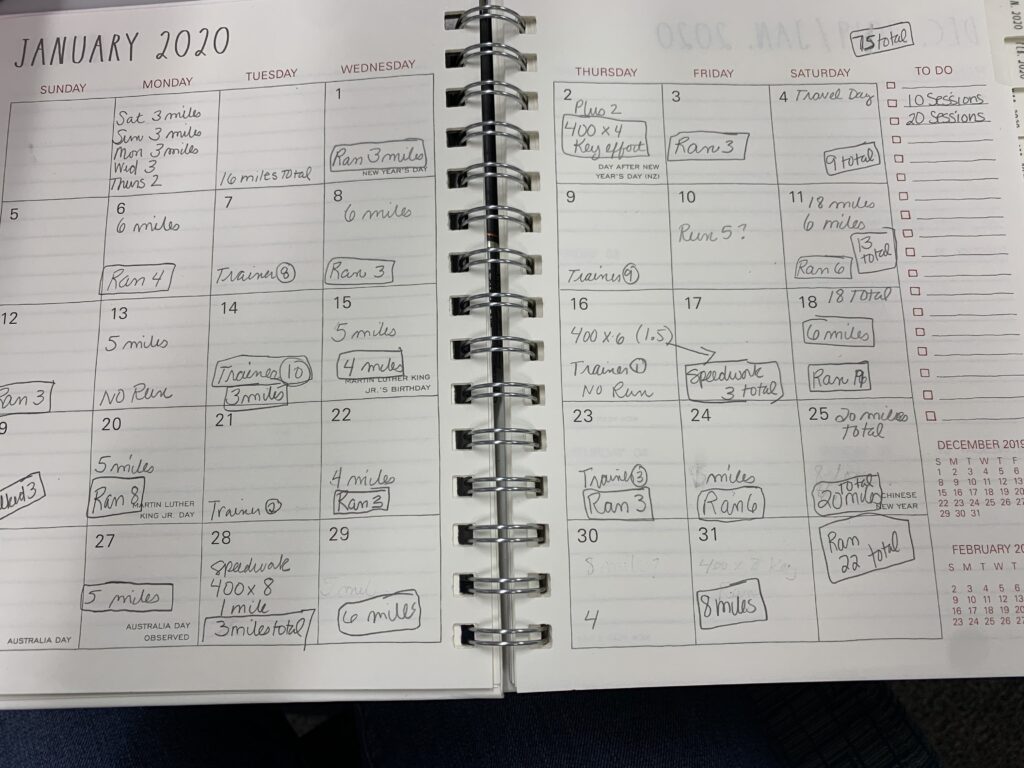 JANUARY 2020
75 total
SUNDAY MONDAY TUESDAY WEDNESDAY THURSDAY FRIDAY SATURDAY TO DO
Sat 3 miles
Sun 3 miles
Mon 3 miles
Wed 3
Thurs 2
16 miles Total
1
Ran 3 miles
NEW YEAR'S DAY
2
Plus 2
400 x 4
Key effort
DAY AFTER NEW
YEAR'S DAY (NZ)
3
Ran 3
4 Travel Day
9 total
10 Sessions
20 Sessions
5
6
6 miles
Ran 4
7
Trainer 8
8
6 miles
Ran 3
9
Trainer 9
10
Run 5?
11 18 miles
6 miles
13
total
Ran 6
12
Ran 3
13
5 miles
NO Run
14
Trainer 10
3 miles
15
5 miles
4 miles
MARTIN LUTHER KING
JR.'S BIRTHDAY
16
400 x 6 (1.5)
Trainer 1
NO Run
17
Speedwork
3 total
18 18 Total
6 miles
Ran
20
5 miles
Ran 8
MARTIN LUTHER
KING JR. DAY
21
Trainer 2
22
4 miles
Ran 3
23
Trainer 3
Ran 3
24
miles
Ran 6
25 20 miles
total
Total
20 miles
CHINESE
NEW YEAR
AUSTRALIA DAY
27
5 miles
AUSTRALIA DAY
OBSERVED
28
Speedwork
400 x 8
1 mile
3 miles total
29
6 miles
30
4
31
8 miles
Ran
22 total
DECEMBER 2019
S M T W T F
1 2 3 4 5 6
8 9 10 11 12 13
15 16 17 18 19 20
22 23 24 25 26 27
29 30 31
FEBRUARY
S M T W T
2 3 4 5 6
9 10 11 12 13
16 17 18 19 20
23 24 25 26 27